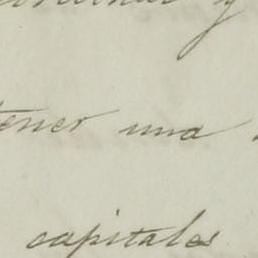 y
tener una
capitales